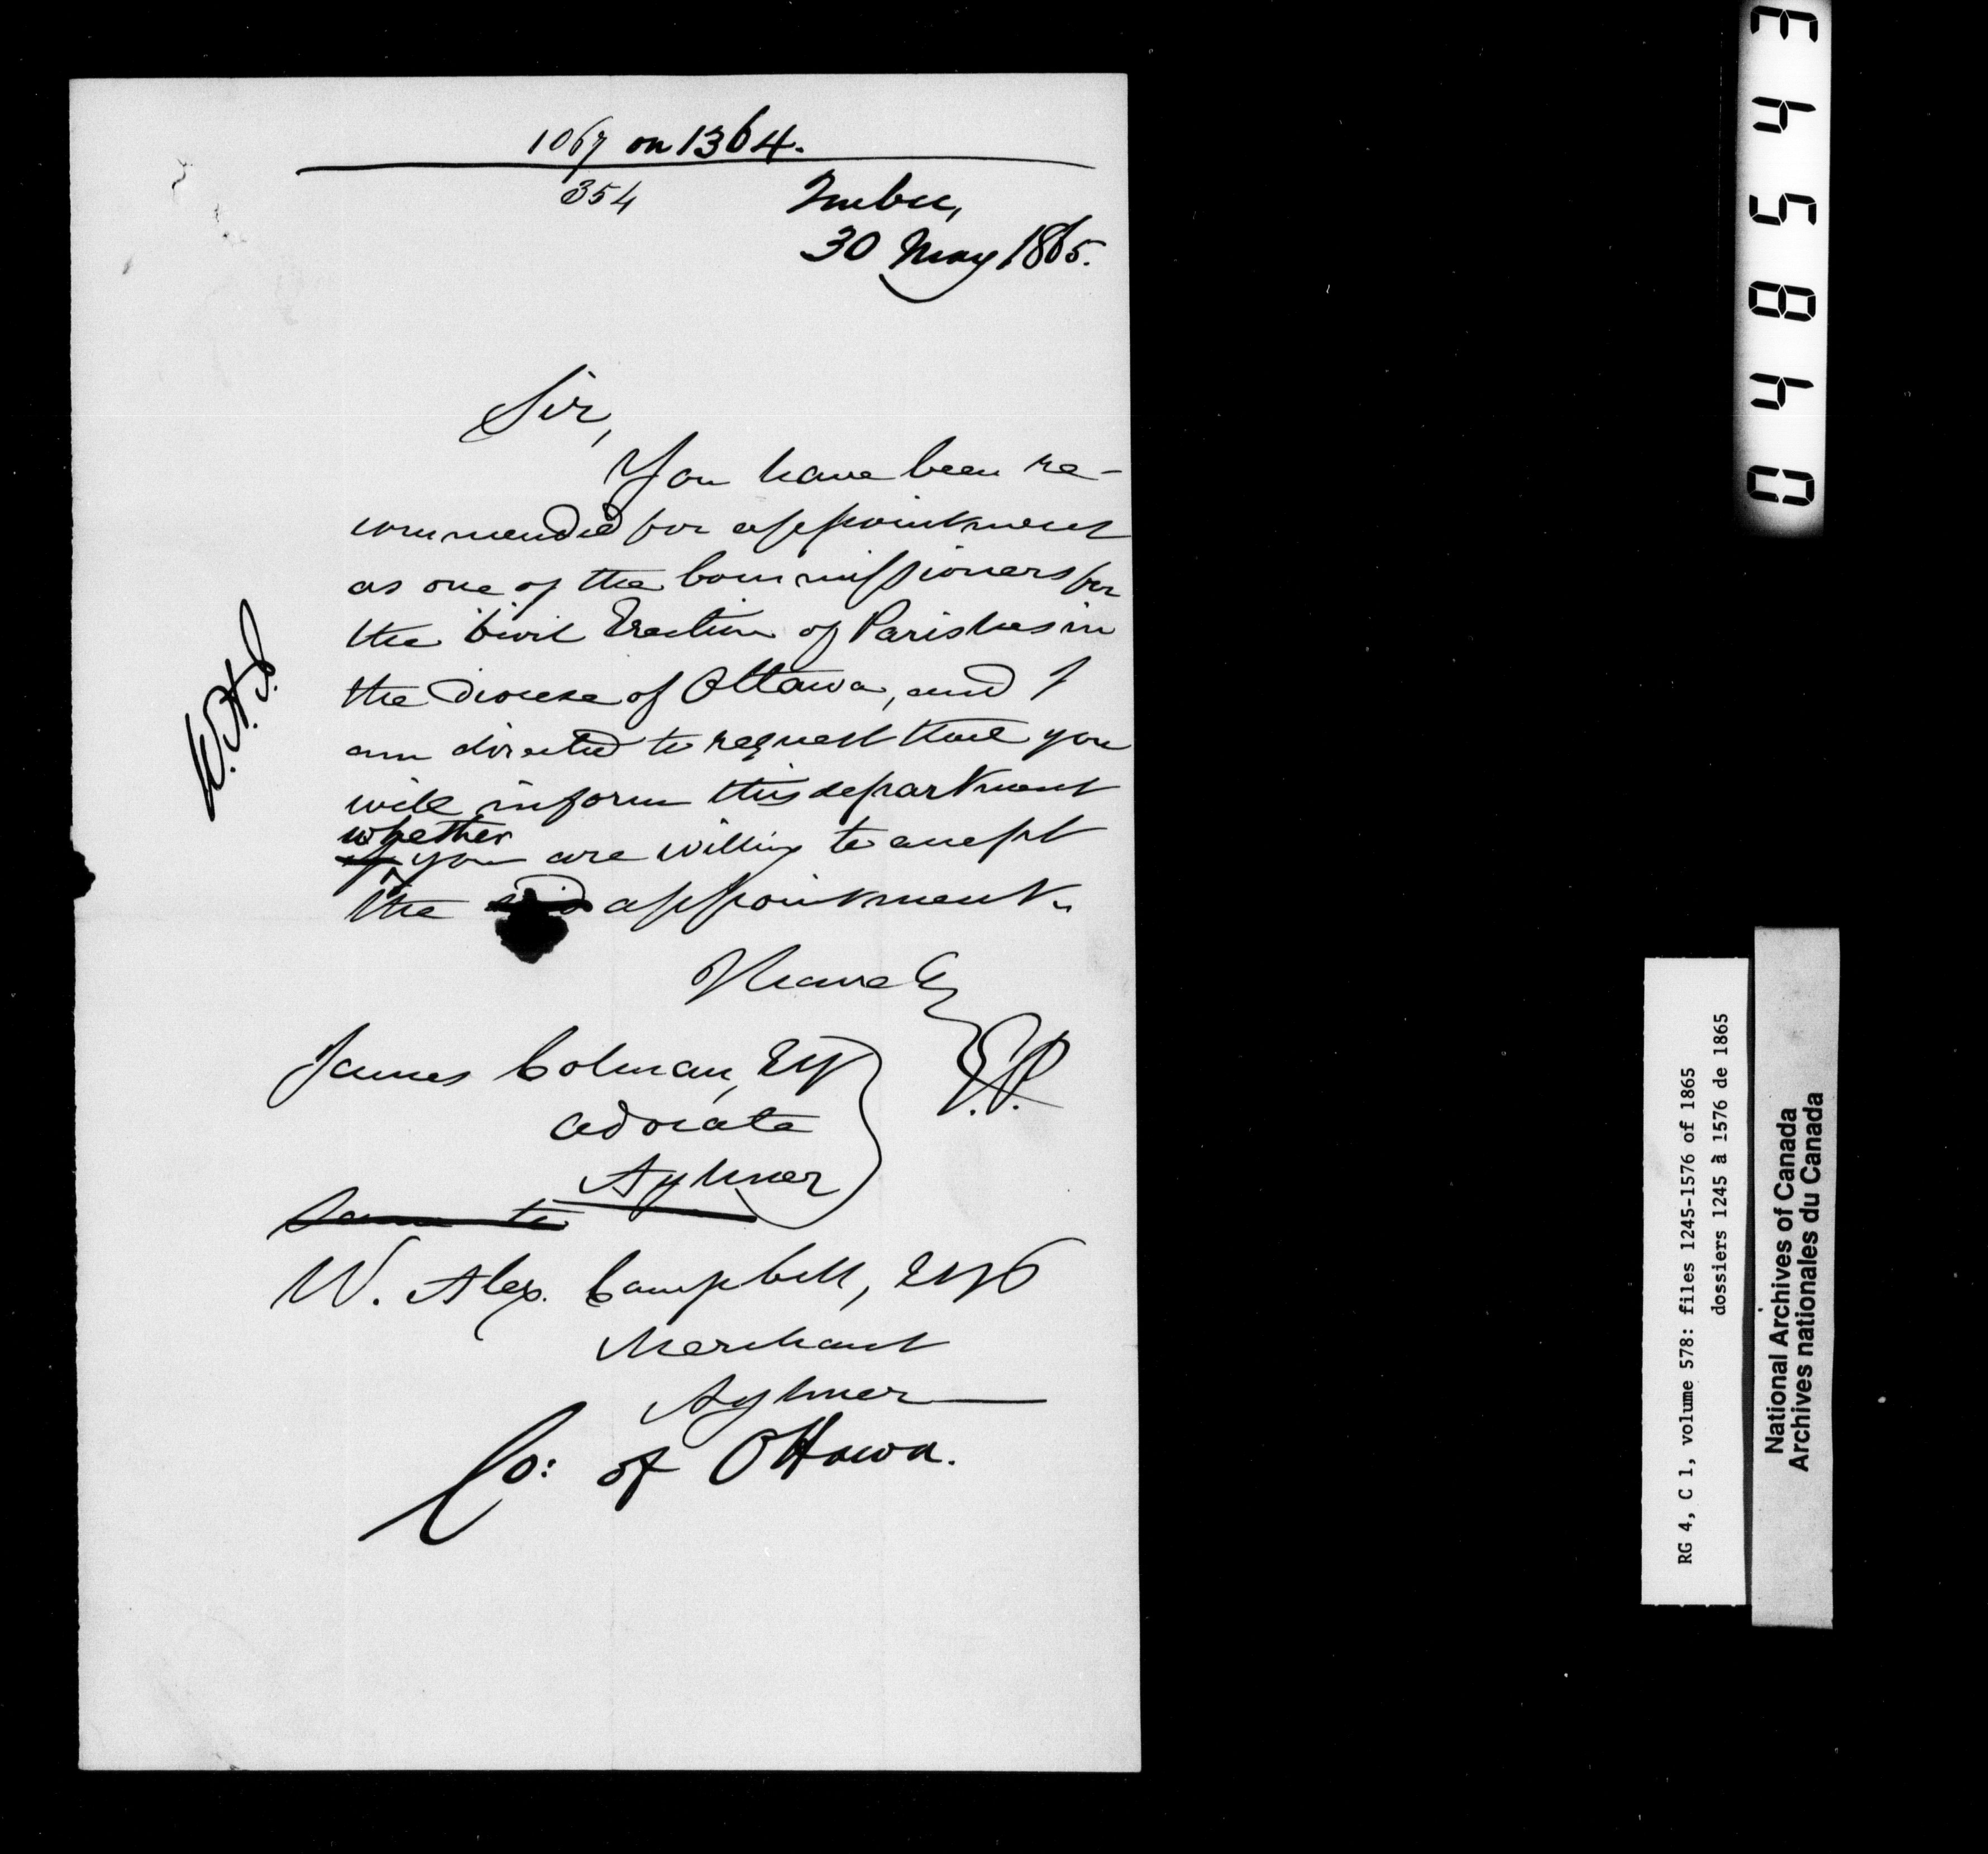 1067 on 1364.
354
Quebec,
30 May 1865.
Sir,
You have been re-
commended for appointment
as one of the Commissioners for
the Civil Erection of Parishes in
the Diocese of Ottawa, and I
am directed to request that you
will inform this department
whether
if you are willing to accept
the said appointment.
I have &
E.P.
James Colman, Esq
advocate
Aylmer
Same to
W. Alex. Campbell, Esq
Merchant
Aylmer
Co: of Ottawa.
043 4 5 8 4 0
RG 4, C 1, volume 578: files 1245-1576 of 1865
dossiers 1245 à 1576 de 1865
National Archives of Canada
Archives nationales du Canada